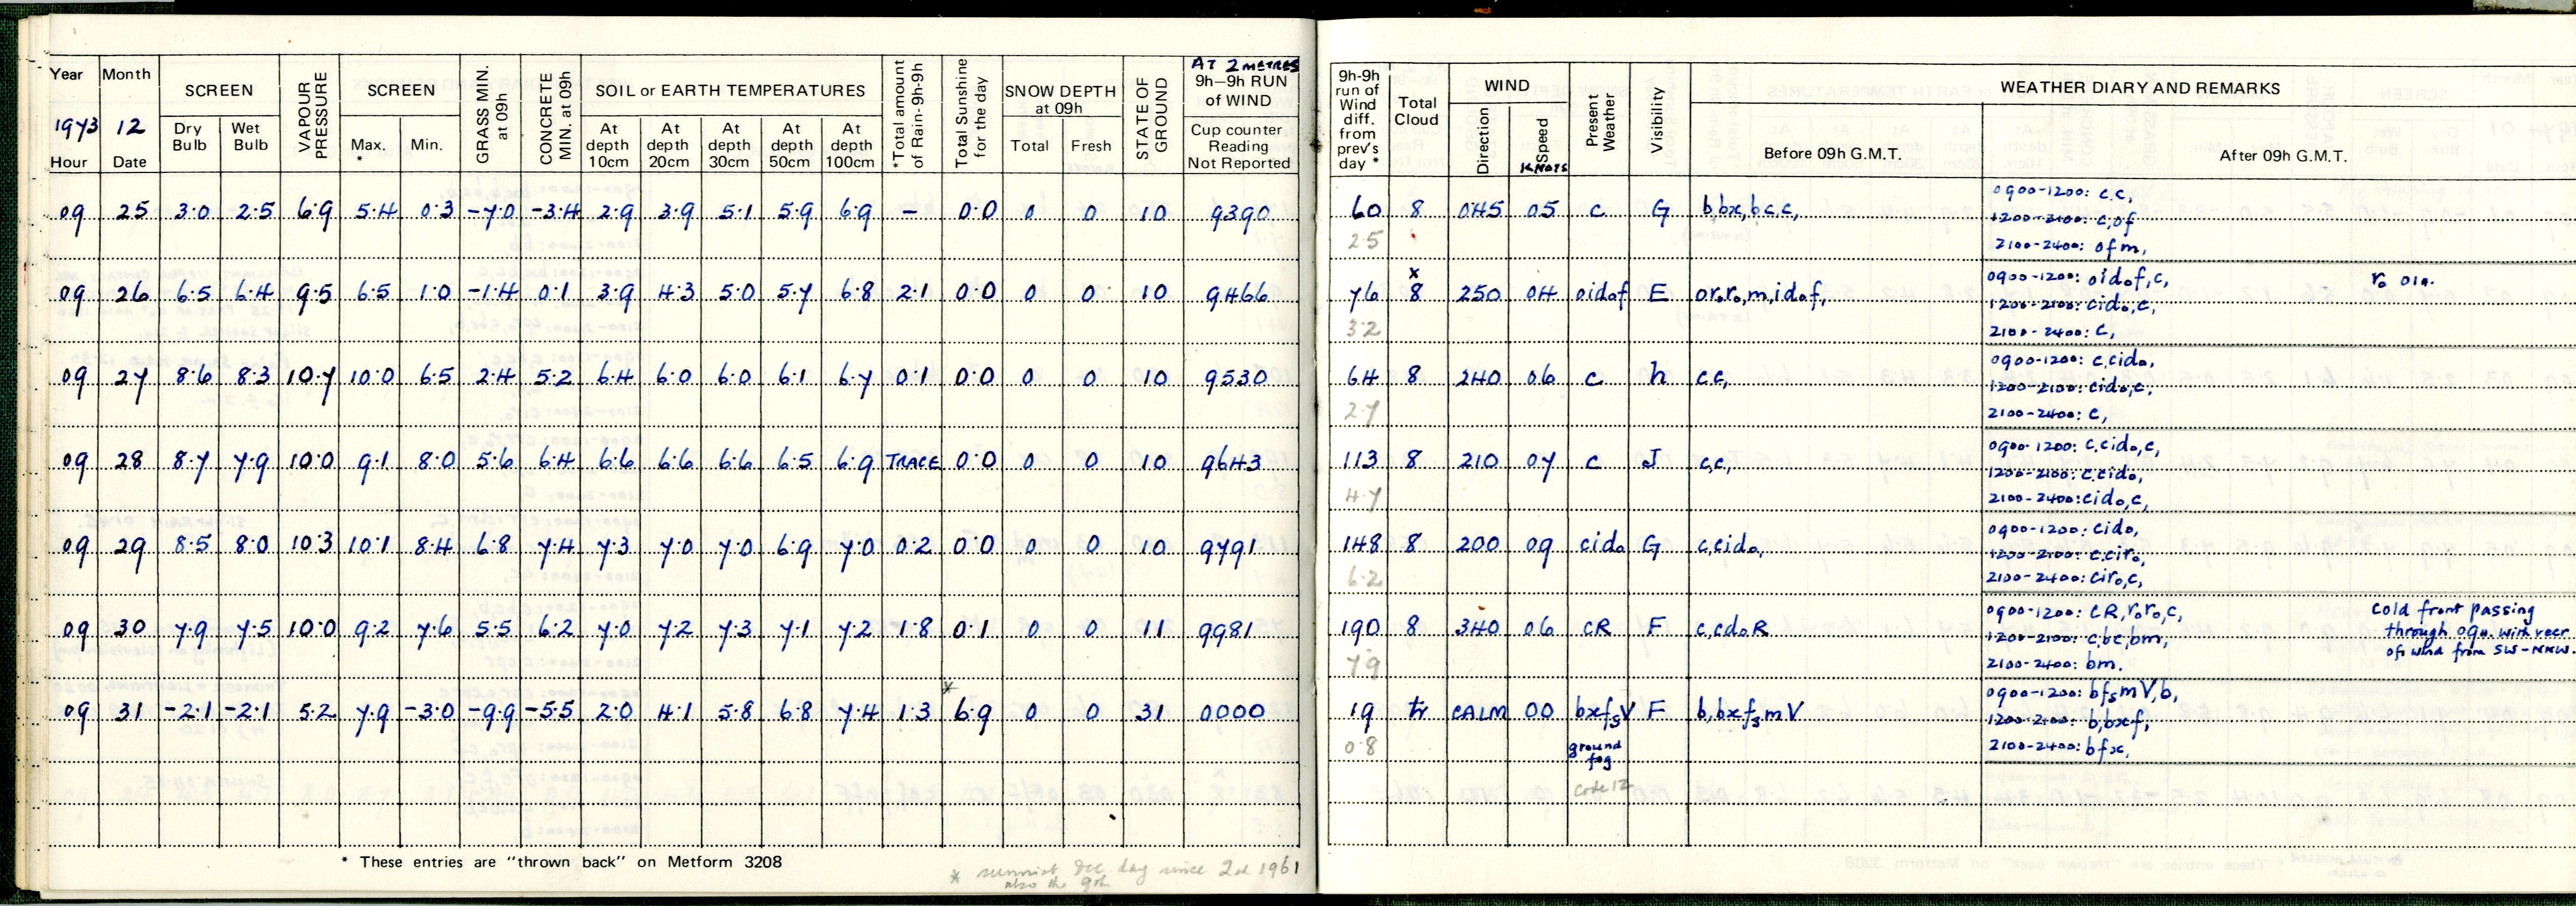 Year Month SCREEN VAPOUR PRESSURE SCREEN GRASS MIN. at 09h CONCRETE MIN. at 09h SOIL or EARTH TEMPERATURES *Total amount of Rain-9h-9h Total Sunshine for the day SNOW DEPTH at 09h STATE OF GROUND AT 2 METRES 9h–9h RUN of WIND
1973 12 Dry Bulb Wet Bulb Max. * Min. At depth 10cm At depth 20cm At depth 30cm At depth 50cm At depth 100cm Total Fresh Cup counter Reading Not Reported
Hour Date
09 25 3.0 2.5 6.9 5.4 0.3 -7.0 -3.4 2.9 3.9 5.1 5.9 6.9 - 0.0 0 0 10 9390
09 26 6.5 6.4 9.5 6.5 1.0 -1.4 0.1 3.9 4.3 5.0 5.7 6.8 2.1 0.0 0 0 10 9466
09 27 8.6 8.3 10.7 10.0 6.5 2.4 5.2 6.4 6.0 6.0 6.1 6.7 0.1 0.0 0 0 10 9530
09 28 8.7 7.9 10.0 9.1 8.0 5.6 6.4 6.6 6.6 6.6 6.5 6.9 TRACE 0.0 0 0 10 9643
09 29 8.5 8.0 10.3 10.1 8.4 6.8 7.4 7.3 7.0 7.0 6.9 7.0 0.2 0.0 0 0 10 9791
09 30 7.9 7.5 10.0 9.2 7.6 5.5 6.2 7.0 7.2 7.3 7.1 7.2 1.8 0.1 0 0 11 9981
*
09 31 -2.1 -2.1 5.2 7.9 -3.0 -9.9 -5.5 2.0 4.1 5.8 6.8 7.4 1.3 6.9 0 0 31 0000
* These entries are "thrown back" on Metform 3208
* sunniest Dec day since 2nd 1961
also the 9th
9h-9h run of Wind diff. from prev's day * Total Cloud WIND Present Weather Visibility WEATHER DIARY AND REMARKS
Direction Speed KNOTS Before 09h G.M.T. After 09h G.M.T.
60 8 045 05 c G b,bx,bc,c, 0900-1200: c,c,
1200-2100: c,of
2.5 2100-2400: ofm,
x
76 8 250 04 oidof E or,ro,m,idof, 0900-1200: oidof,c, ro 01h.
1200-2100: cido,c,
3.2 2100-2400: c,
64 8 240 06 c h c,c, 0900-1200: c,cido,
1200-2100: cido,c,
2.7 2100-2400: c,
113 8 210 07 c J c,c, 0900-1200: c,cido,c,
1200-2100: c,cido,
4.7 2100-2400: cido,c,
148 8 200 09 cido G c,cido, 0900-1200: cido,
1200-2100: c,ciro,
6.2 2100-2400: ciro,c,
190 8 340 06 cR F c,cdoR 0900-1200: cR,roro,c, cold front passing
1200-2100: c,bc,bm, through 09H. with veer
7.9 2100-2400: bm. of wind from SW-NNW.
19 tr CALM 00 bxfsV F b,bxfsmV 0900-1200: bfsmV,b,
1200-2100: b,bxf,
0.8 ground fog 2100-2400: bfx,
code 12